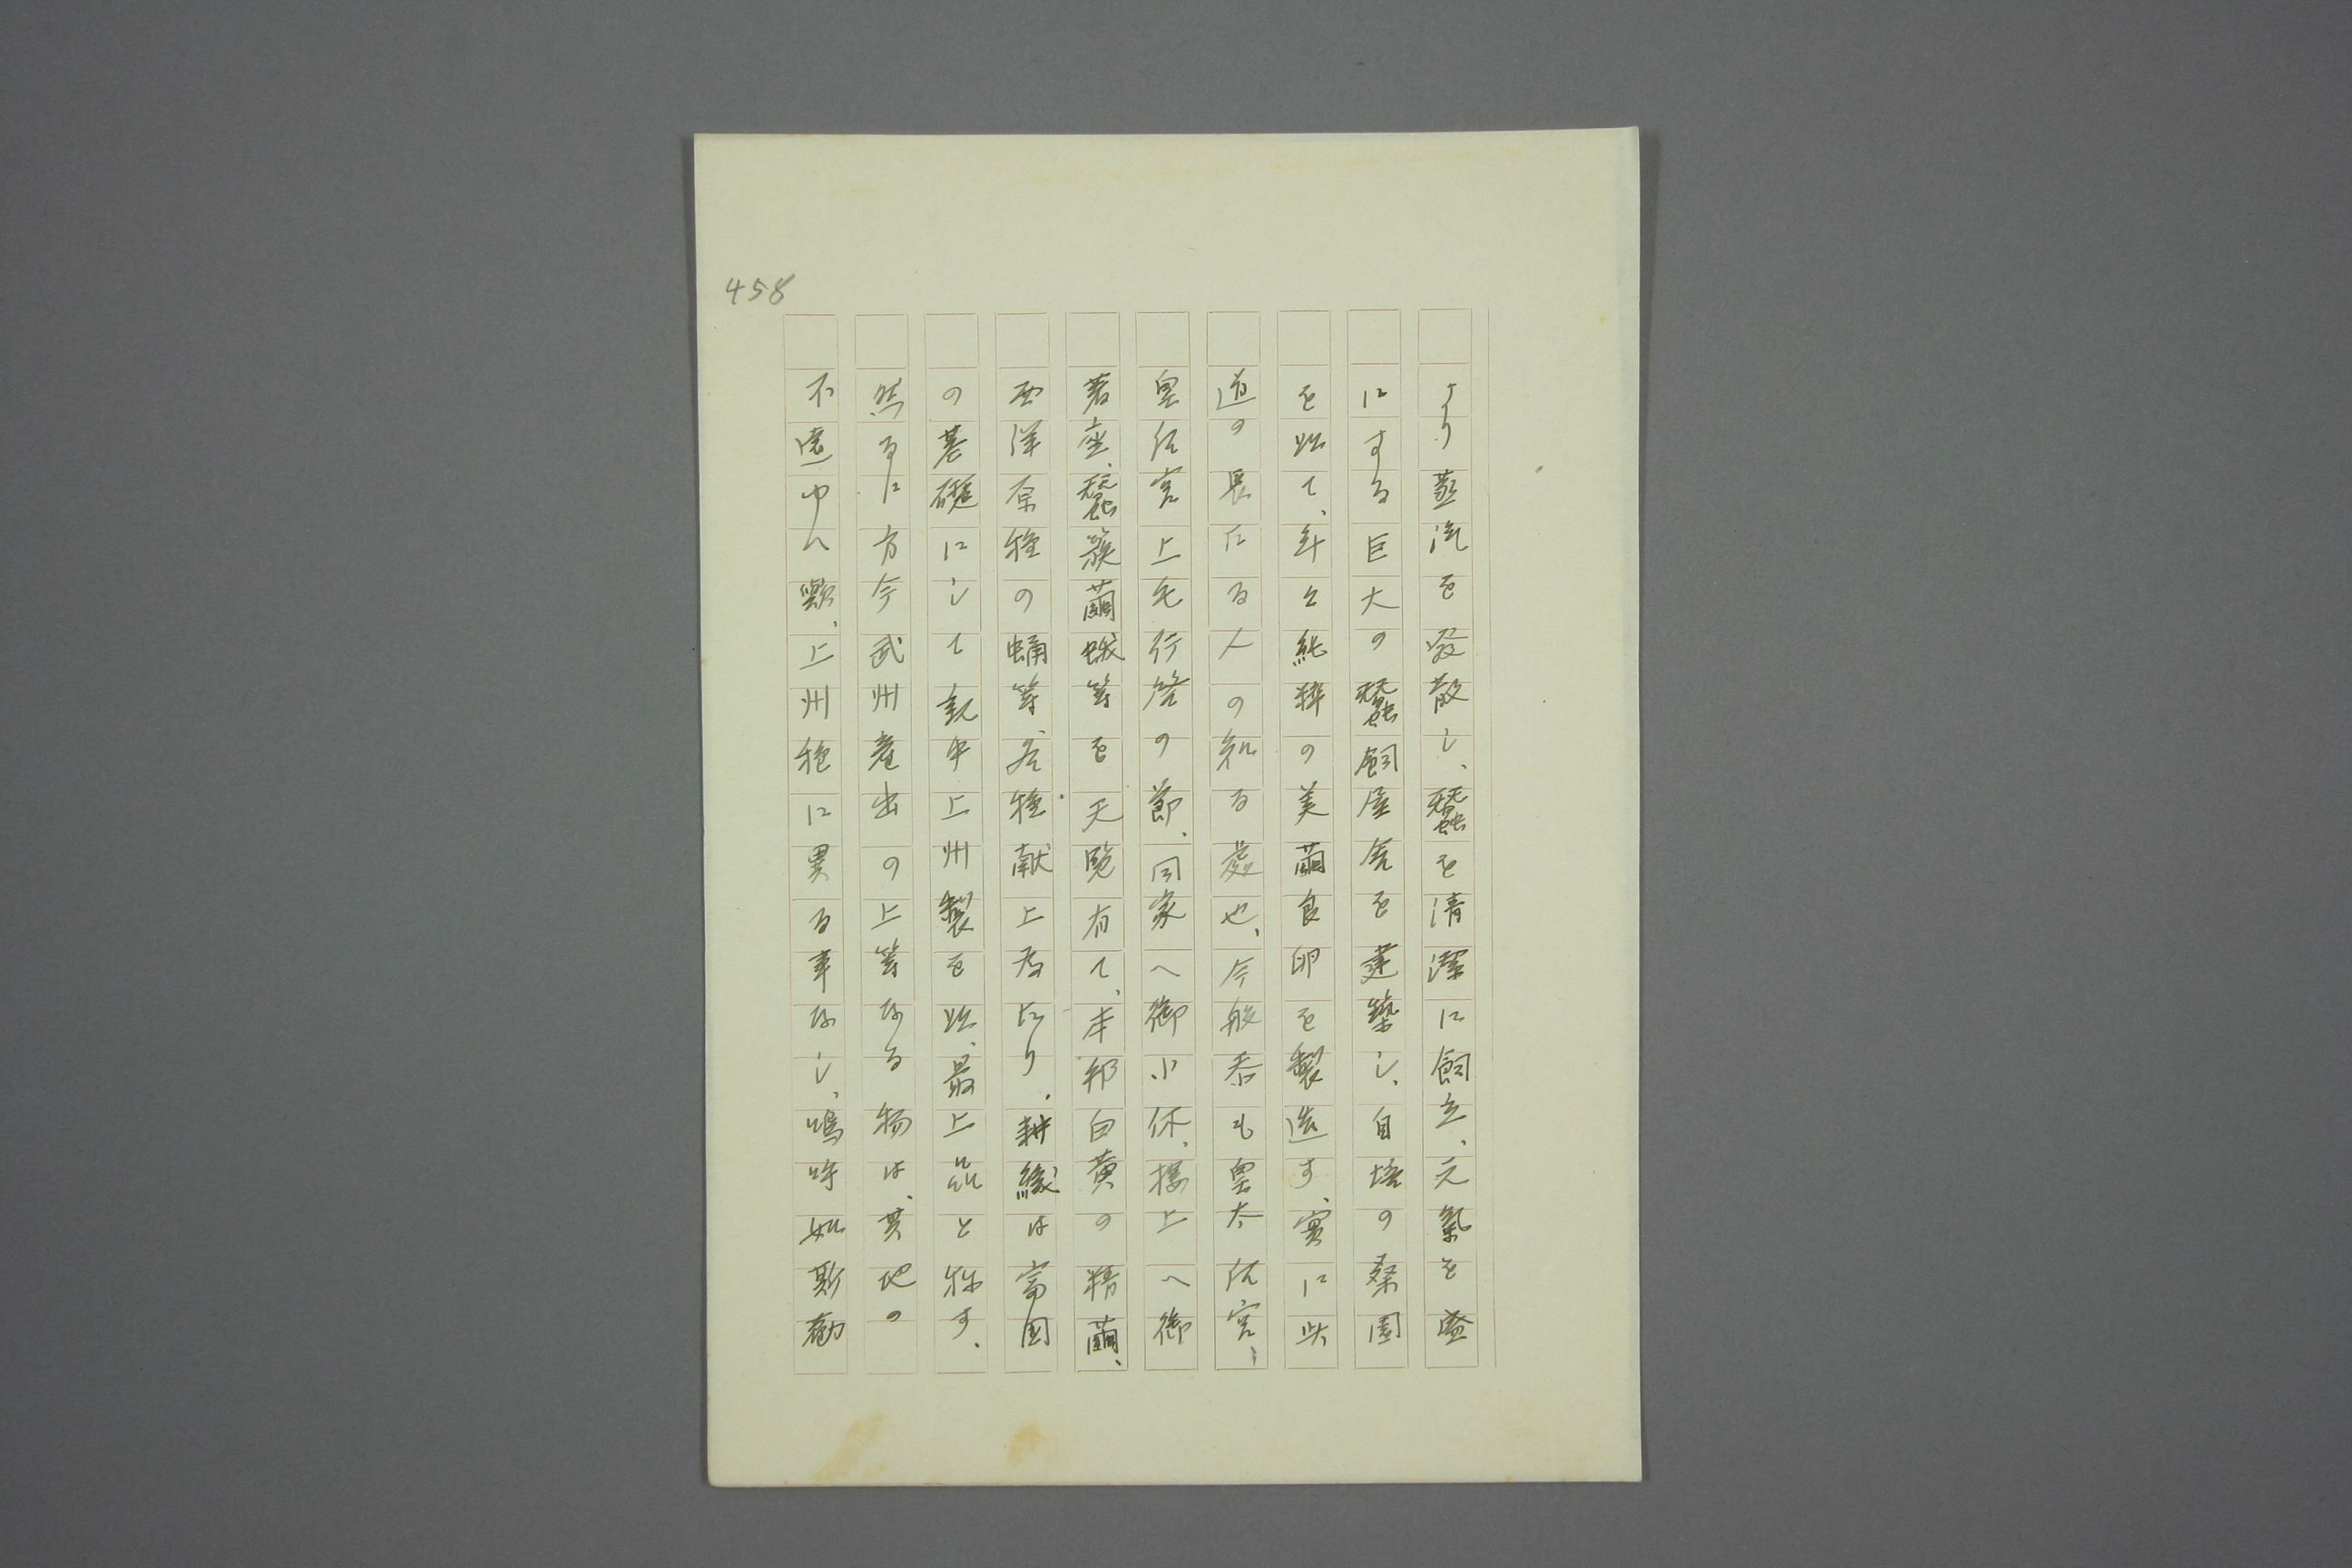 458
より蒸汽を發散し、蠶を清潔に飼立、元氣を盛
にする巨大の蠶飼屋舎を建築し、自培の桑園
を以て、年々純粋の美繭良卵を製造す、実に此
道の長たる人の知る處也、今般忝も皇太后宮、
皇后宮上毛行啓の節、同家へ御小休、樓上へ御
着座、蠶簇繭蛾等を天覧有て、本邦白黄の精繭、
西洋原種の蛹等、各種献上為たり、耕織は富国
の基礎にして就中上州製を以、最上品と称す、
然るに方今武州産出の上等なる物は、其地の
不遠ゆへ歟、上州種に異る事なし、嗚呼如斯勸